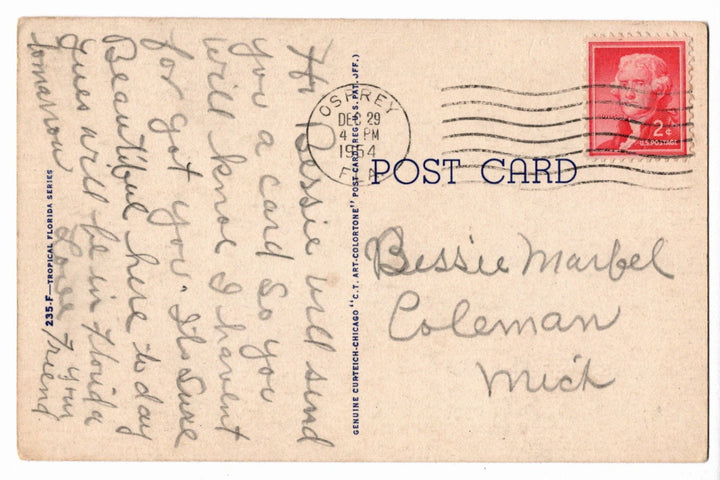 Hi Bessie will send
you a card so you
will knoe I havent
for got you. Its sure
Beautiful here to day
Gues will be in Florida
tomarrow
Love your
friend
235-F—TROPICAL FLORIDA SERIES
GENUINE CURTEICH-CHICAGO "C.T. ART-COLORTONE" POST CARD (REG. U.S. PAT. OFF.)
OSPREY
DEC 29
4 PM
1954
FLA
2¢
U.S. POSTAGE
POST CARD
Bessie Marbel
Coleman
Mich